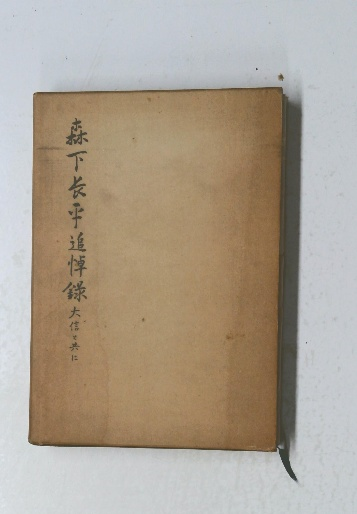 森下長平追悼録 大信と共に